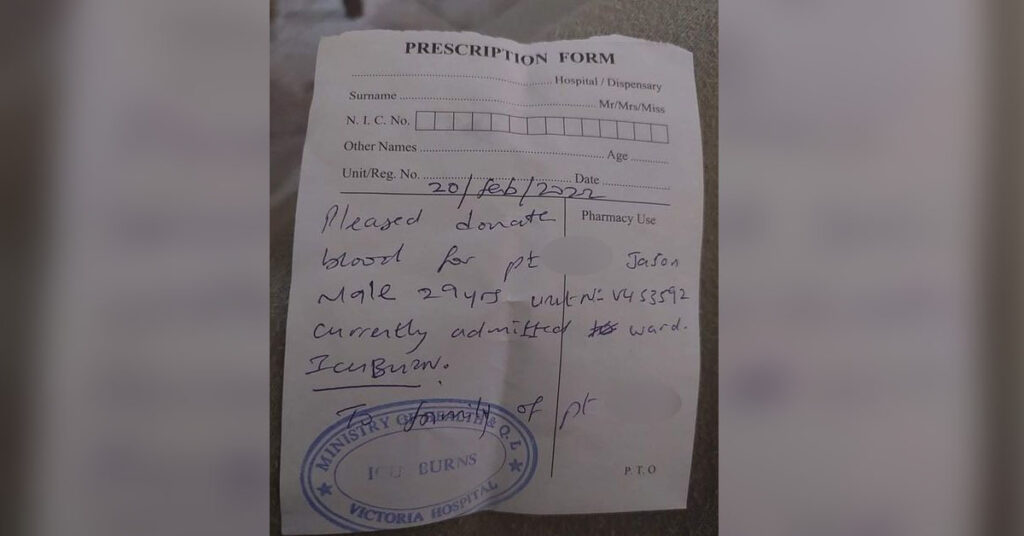 PRESCRIPTION FORM
Hospital / Dispensary
Surname Mr/Mrs/Miss
N. I. C. No.
Other Names Age
Unit/Reg. No. Date
20/feb/2022
Pleased donate Pharmacy Use
blood for pt Jason
Male 29yrs unit No: V453592
currently admitted ward.
ICU Burn.
To family of pt
MINISTRY OF HEALTH & Q.L
ICU BURNS
VICTORIA HOSPITAL
P.T.O